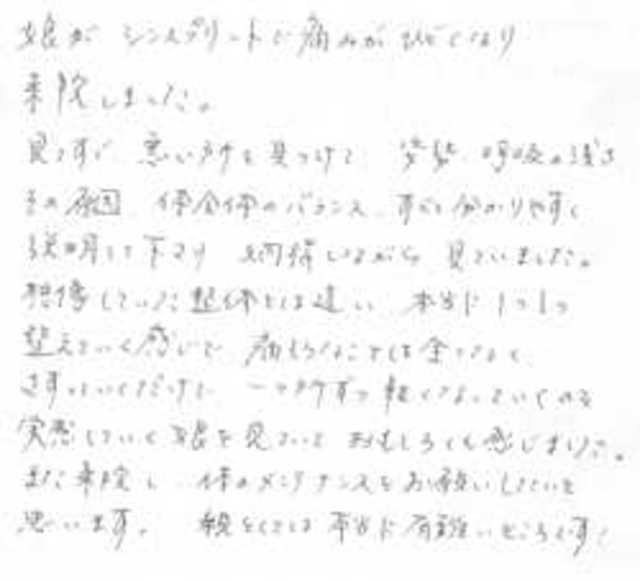 娘が シンスプリントで痛みがひどくなり
来院しました。
見てすぐ 悪い所を見つけて 姿勢、呼吸の浅さ
その原因、体全体のバランス、すごく分かりやすく
説明して下さり 納得しながら 見ていました。
想像していた整体とは違い 本当に1つ1つ
整えていく感じで 痛そうなことは全くなく
さすっていくだけで 一つずつ軽くなっていくのを
実感していく娘を見ていて おもしろくも感じました。
また来院し、体のメンテナンスをお願いしたいと
思います。 親としては本当に有難いところです!